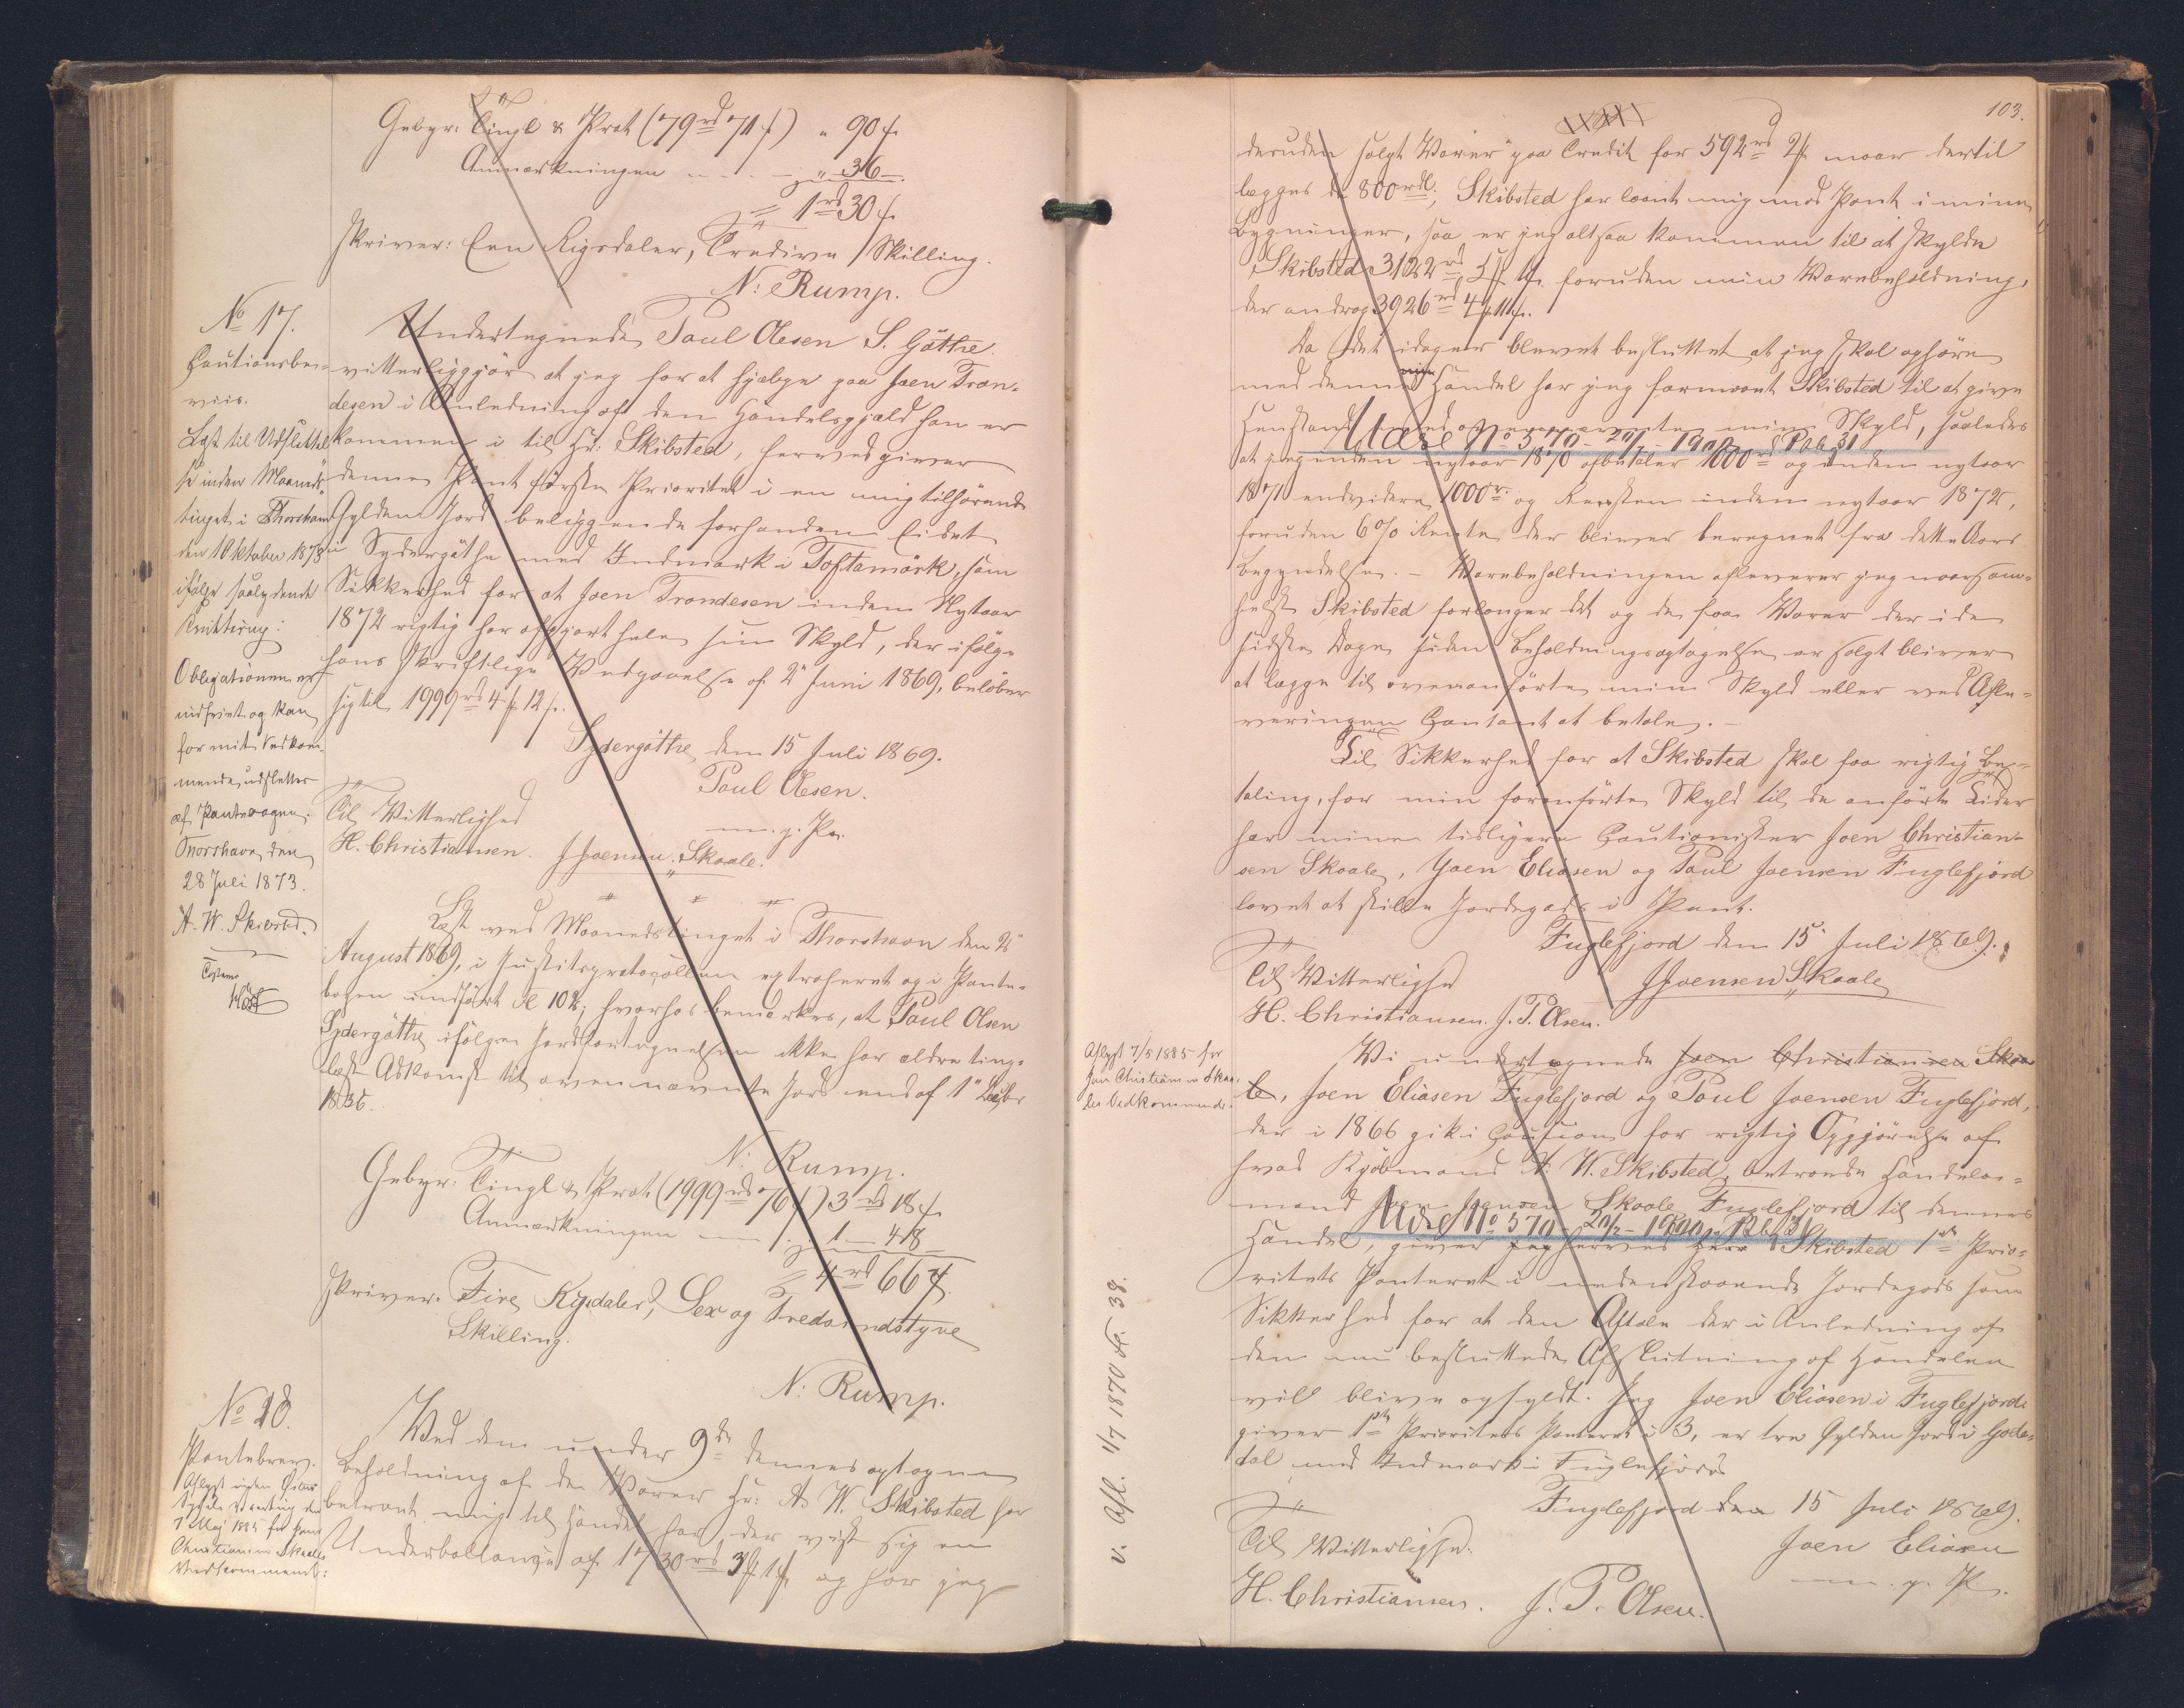 Gebyr: Tingl & Prot (79rd 71 s) " 90 s.
Anmærkningen - - - - " 36 -
= 1rd 30 s.
skriver: Een Rigsdaler, Tredive Skilling.
N: Rump.
No 17.
Cautionsbe-
viis.
Læst til Udslettel-
se inden Maaneds-
tinget i Thorshavn
den 1 Oktober 1873
ifølge saalydende
Kvittering:
Obligationen er
indfriet og kan
for mit Vedkom-
mende udslettes
af Pantebogen.
Thorshavn, den
28 Juli 1873.
A. W. Skibsted.
Undertegnede Poul Olesen S. Gøthe
vitterliggjør at jeg for at hjælpe paa Joen Tron-
desen i Anledning af den Handelsgjæld han er
kommen i til Hr: Skibsted, herved giver
denne Pant første Prioritet i en mig tilhørende
Gylden Jord beliggende forhanden Eidet
i Sydergøthe med Indmark i Toftamørk, som
Sikkerhed for at Joen Trondesen inden Nytaar
1872 rigtig har afgjort hele sin Skyld, der ifølge
hans skriftlige Vedgaaelse af 2 Juni 1869, beløber
sig til 1999rd 4 # 12 s.
Sydergøthe, den 15 Juli 1869.
Poul Olesen.
m. f. P.
Til Vitterlighed
H. Christiansen. J Joensen. Skaale.
Læst ved Maanedstinget i Thorshavn den 2
August 1869, i Justitsprotocollen extraheret og i Pante-
bogen indført Fol 102; hvorhos bemærkes, at Poul Olsen
Sydergøthe ifølge Jordfortegnelsen ikke har ældre ting-
læst Adkomst til ovennævnte Jord end af 1
N: Rump.
Gebyr: Tingl & Prot (1999rd 76 s) 3rd 18 s.
Anmærkningen - - 1 - 48
= 4rd 66 s.
skriver: Fire Rigsdaler, Sex og Tredsindstyve
Skilling.
N: Rump.
No 18.
Pantebrev.
7 Maj 1885 for Joen
Christiansen Skaales
Vedkommende:
Ved den under 9de dennes optagne
Beholdning af de Varer Hr: A. W. Skibsted har
betroet mig til Handel har der vist sig en
Underballance af 1730rd 3 # 1 s. og har jeg
103.
desuden solgt Varer paa Credit for 592rd 2 # naar dertil
lægges de 800rdl. Skibsted har laant mig mod Pant i mine
Bygninger, saa er jeg altsaa kommen til at skylde
Skibsted 3122rd 5 # 1 s. foruden min Varebeholdning,
der androg 3926rd 4 # 11 s.
Da det idag er blevet besluttet at jeg skal ophøre
med denne min Handel har jeg formaaet Skibsted til at give
Henstand med ovennævnte min Skyld, saaledes
Udsl. No 570 - 20/7 - 1900 Pbl. 31
at jeg inden nytaar 1870 afbetaler 1000rd og inden nytaar
1871 endvidere 1000r. og Resten inden nytaar 1872,
foruden 6% Rente der bliver beregnet fra dette Aars
Begyndelse. - Varebeholdningen afleverer jeg naarsom-
helst Skibsted forlanger det og de faa Varer der i de
sidste Dage siden Beholdningsoptagelsen er solgt bliver
at lægge til ovenanførte min Skyld eller ved Afle-
veringen Contant at betale. -
Til Sikkerhed for at Skibsted skal faa rigtig Be-
taling, for min foranførte Skyld til de anførte Tider
har mine tidligere Cautionister Joen Christian-
sen Skaale, Joen Eliasen og Poul Joensen Fuglefjord
lovet at stille Jordegods i Pant.
Fuglefjord den 15 Juli 1869.
Til Vitterlighed JJoensen Skaale
H. Christiansen. J. P. Olsen.
Aflyst 7/5 1885 for
Joen Christiansen Skaa-
les Vedkommende.
Vi undertegnede Joen Christiansen Skaa-
le, Joen Eliasen Fuglefjord og Poul Joensen Fuglefjord,
der i 1866 gik i Caution for rigtig Opgjørelse af
hvad Kjøbmand A. W. Skibsted betroede Handels-
mand Joen Joensen Skaale Fuglefjord til dennes
Udsl. No 570 - 20/7 - 1900 - Pbl. 31
Handel, giver jeg herved Herr Skibsted 1ste Prio-
ritets Panteret i nedenstaaende Jordegods som
Sikkerhed for at den Aftale der i Anledning af
den nu besluttede Afslutning af Handelen
vil blive opfyldt. Jeg Joen Eliasen i Fuglefjord
giver 1ste Prioritets Panteret i 3, er tre Gylden Jord i Gode-
dal med Indmark i Fuglefjord
Fuglefjord den 15 Juli 1869.
Til Vitterlighed. Joen Eliasen
m. f. P.
H. Christiansen. J. P. Olsen.
v. Afl. 1/7 1870 No. 38.